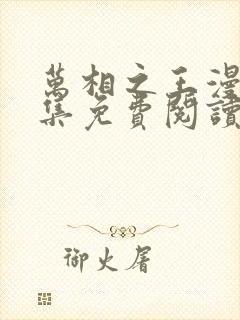 萬相之王漫
集免費閱讀
御火屠